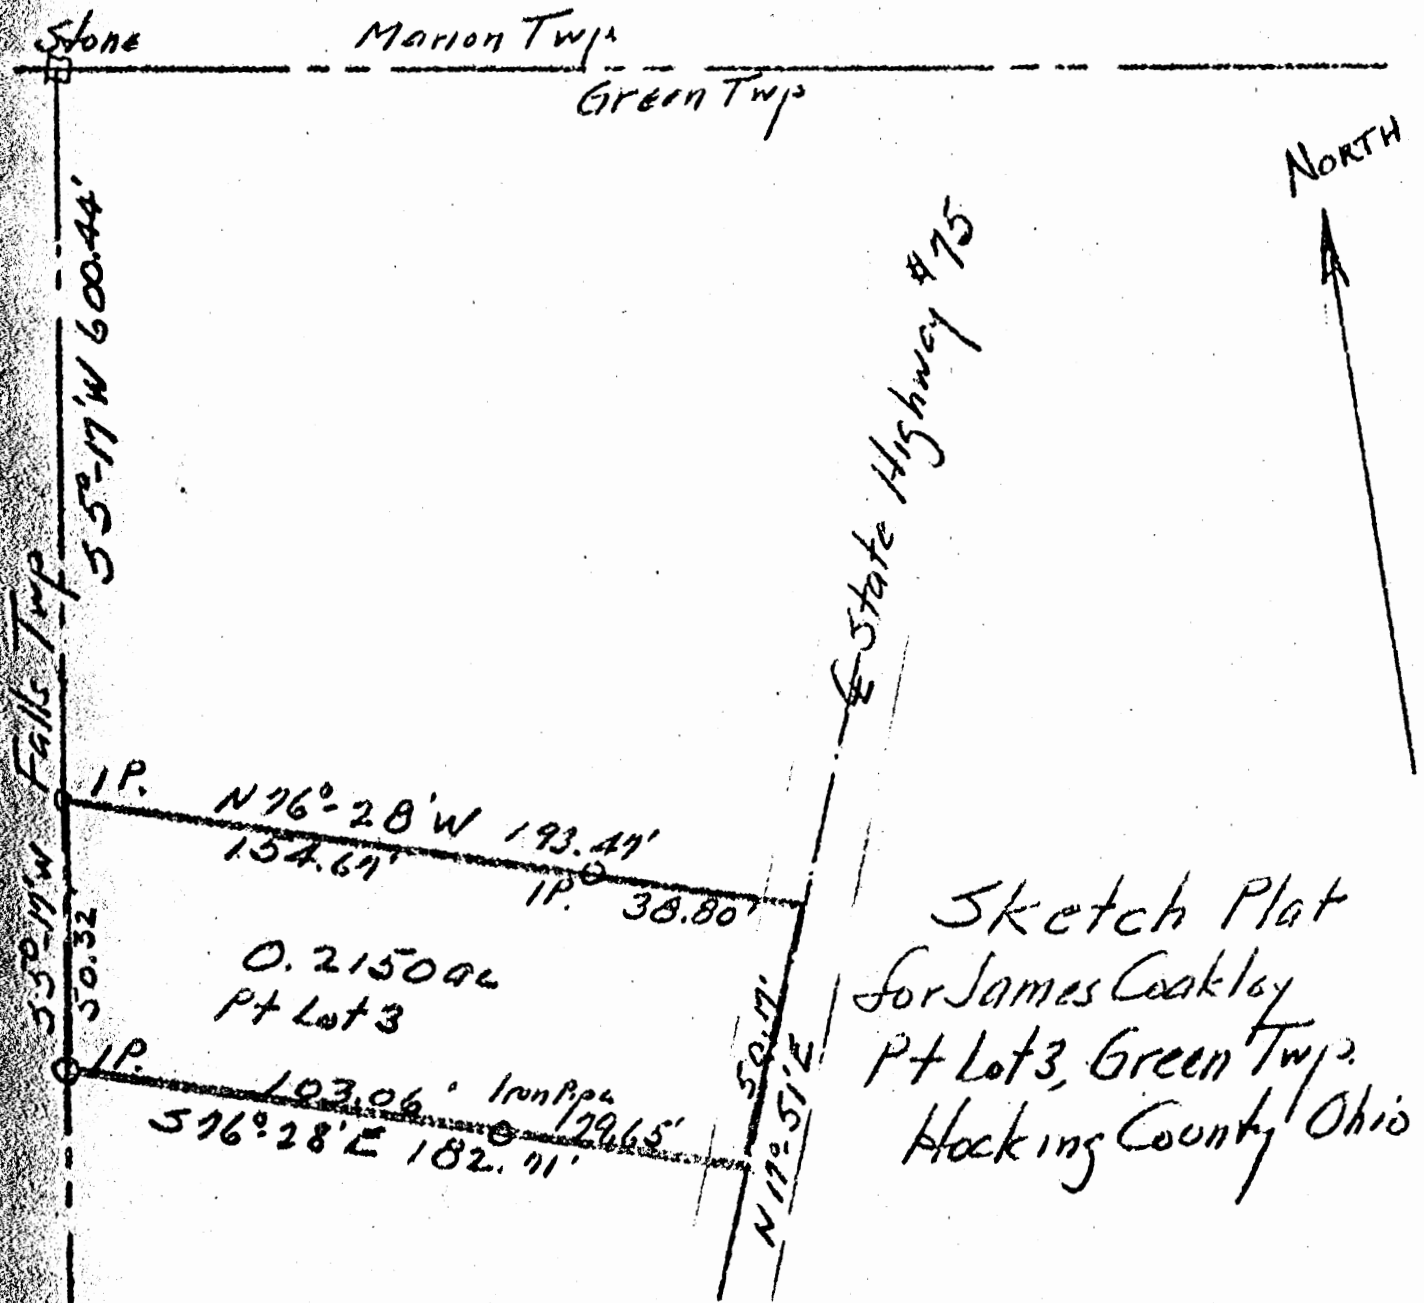 Stone
Marion Twp.
Green Twp
NORTH
S 5°-17'W 600.44'
℄ State Highway #75
Falls Twp
I P.
N 76°-28'W 193.47'
154.67'
IP.
38.80'
S 5°-17'W
50.32
0.2150 ac
Pt Lot 3
I P.
103.06'
Iron Pipe
S 76°-28'E 182.71'
50.17'
N 17°-51'E
Sketch Plat
for James Coakley
Pt Lot 3, Green Twp.
Hocking County Ohio